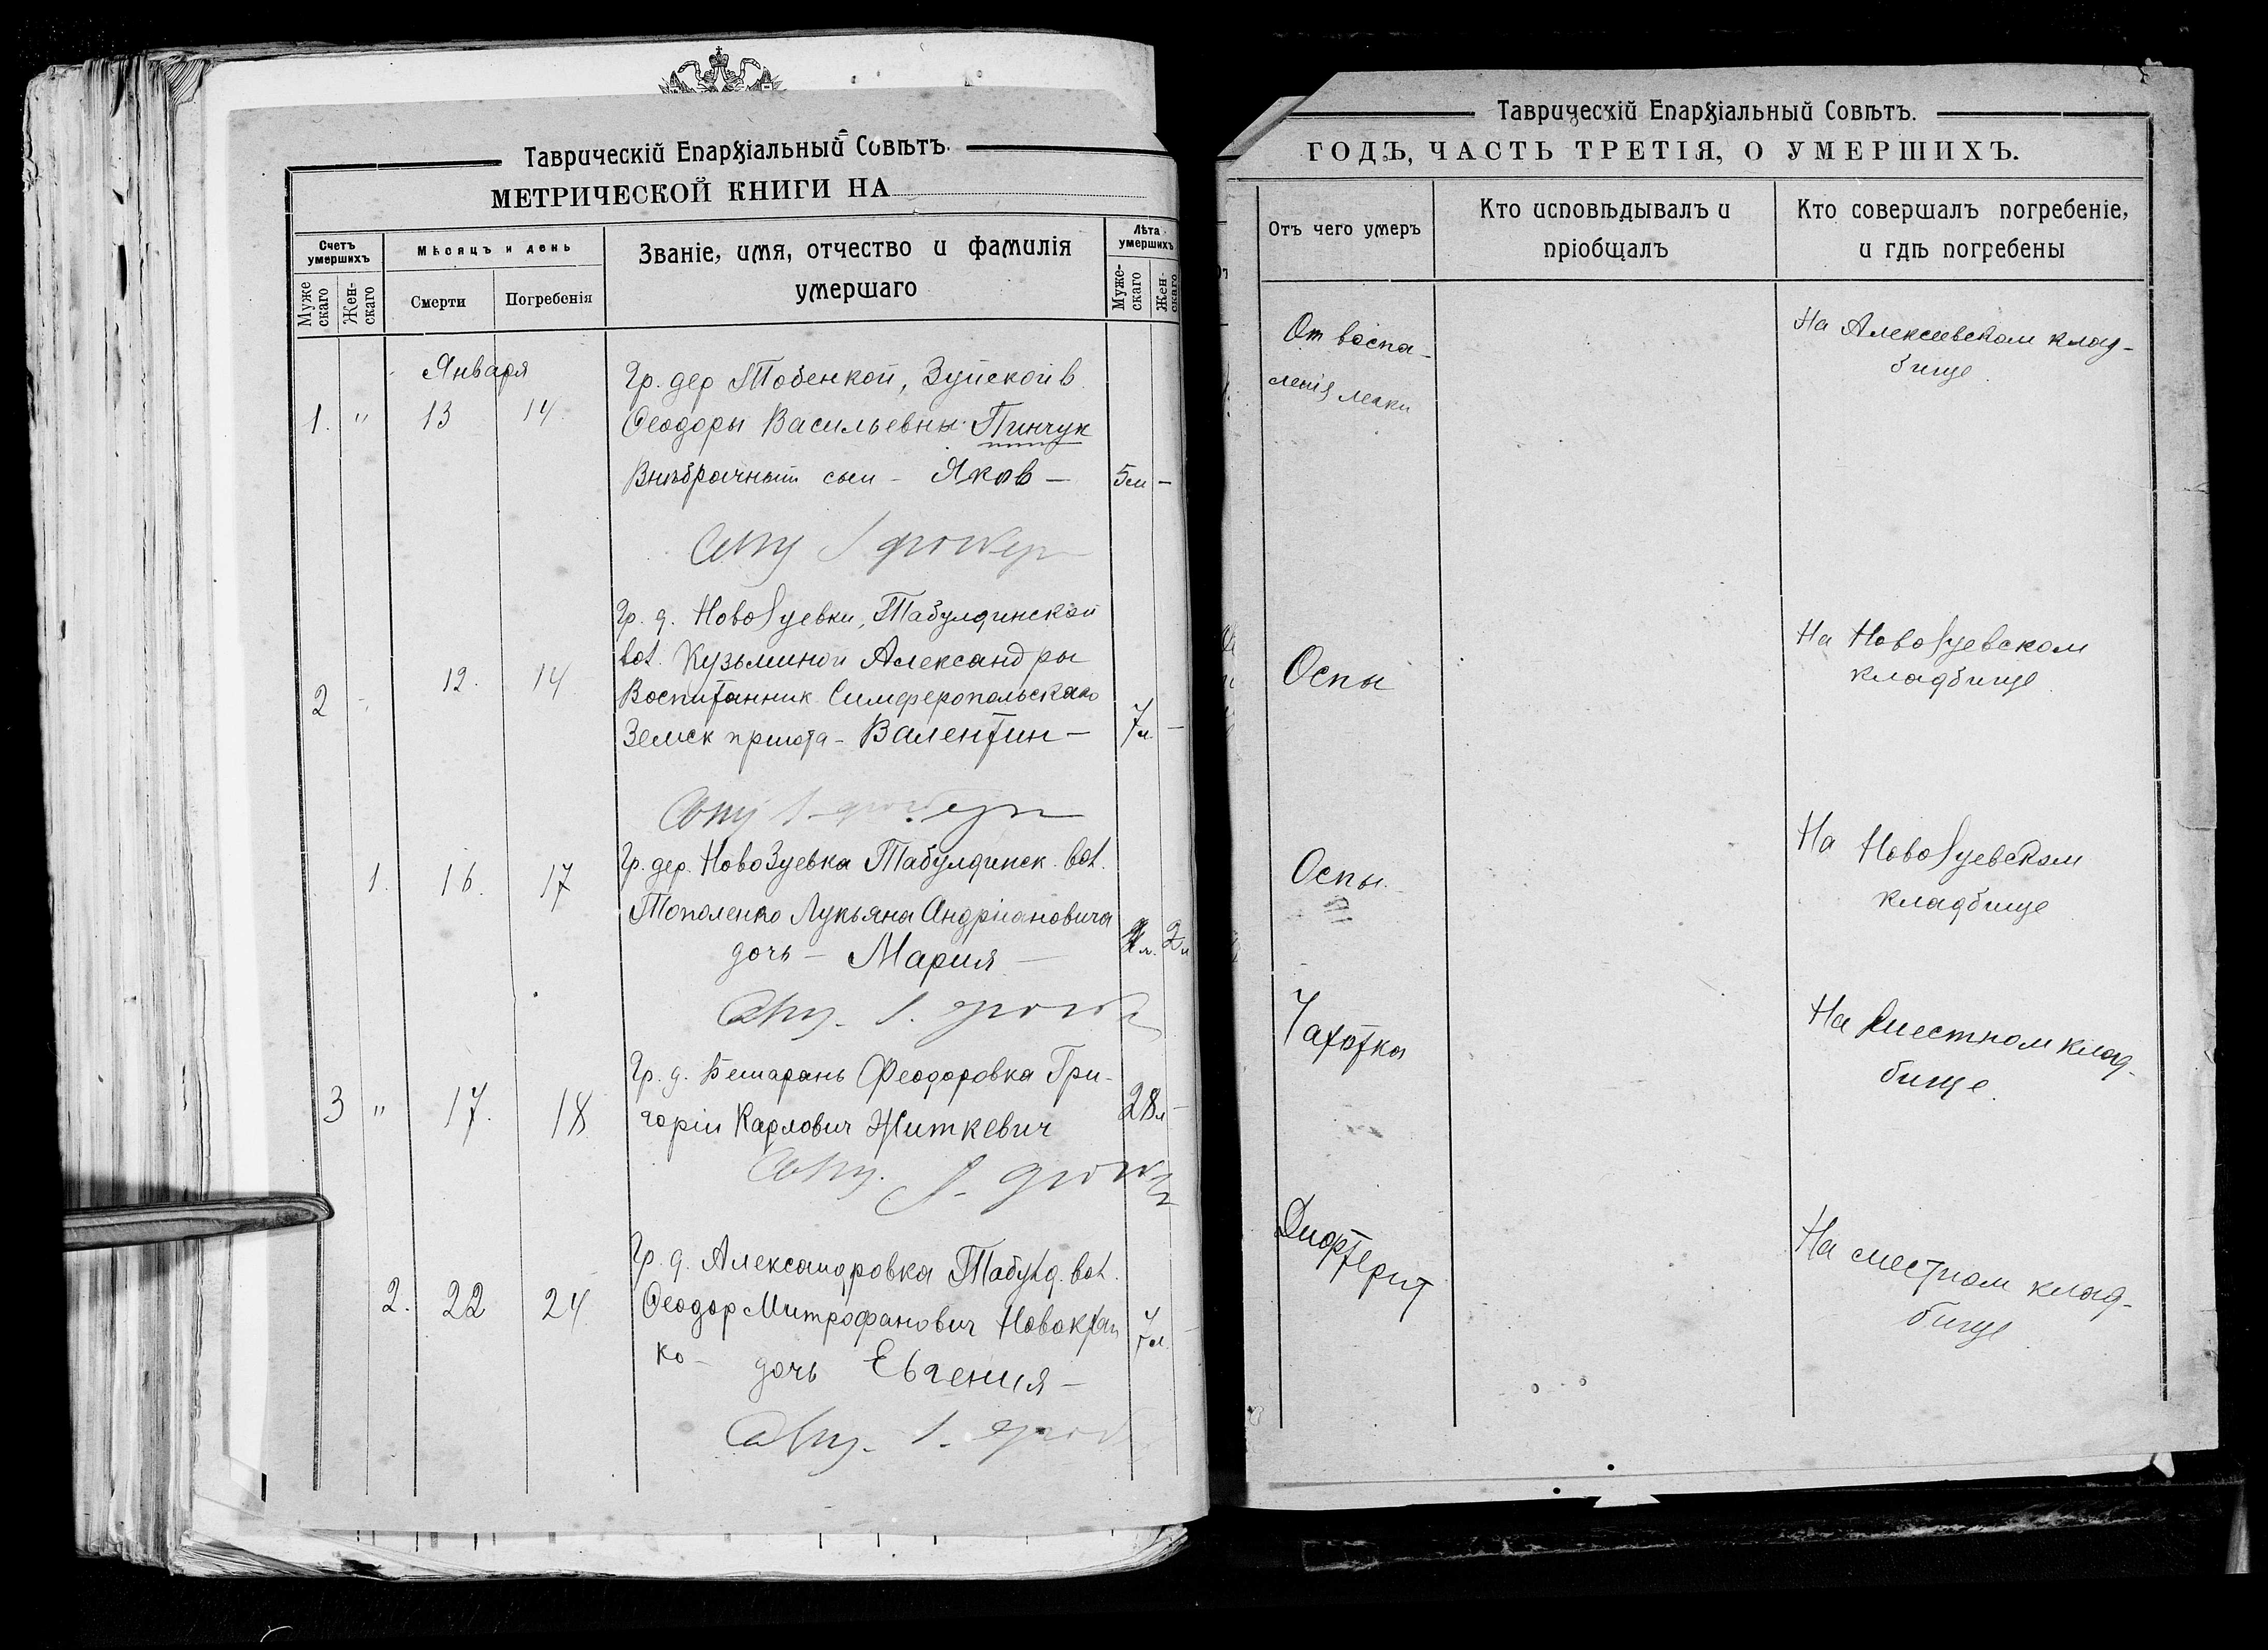 Таврическій Епархіальный Совѣтъ.
МЕТРИЧЕСКОЙ КНИГИ НА
Счетъ умершихъ
Мѣсяцъ и день
Званіе, имя, отчество и фамилія
умершаго
Лѣта умершихъ
Мужескаго
Женскаго
Смерти
Погребенія
Мужескаго
Женскаго
Января
1. " 13 14
Гр. дер Тобенкой, Зуйской в.
Феодоры Васильевны Пинчук
Внѣбрачный сын - Яков - 5м -
Гр. д. НовоЗуевки, Табулдинской
вол. Кузьминой Александры
2 12. 14
Воспитанник Симферопольскаго
Земск приюта - Валентин - 7л. -
Гр. дер. НовоЗуевка Табулдинск. вол.
1. 16. 17
Тополенко Лукьяна Андріановича
дочь - Мария - 2л
Гр. д. Бешарань Феодоровка Гри-
3 " 17. 18
горій Карлович Житкевич 28л -
Гр. д. Александровка Табулд. вол.
2. 22 24
Феодор Митрофанович
ко - дочь Евгения - 7л.
Таврическій Епархіальный Совѣтъ.
ГОДЪ, ЧАСТЬ ТРЕТІЯ, О УМЕРШИХЪ.
Отъ чего умеръ
Кто исповѣдывалъ и
пріобщалъ
Кто совершалъ погребеніе,
и гдѣ погребены
От воспа-
ленія легки
На Алексеевском клад-
бище
Оспы
На НовоЗуевском
кладбище
Оспы.
На НовоЗуевском
кладбище
Чахотка
На местном клад-
бище.
Дифтерит
На местном клад-
бище